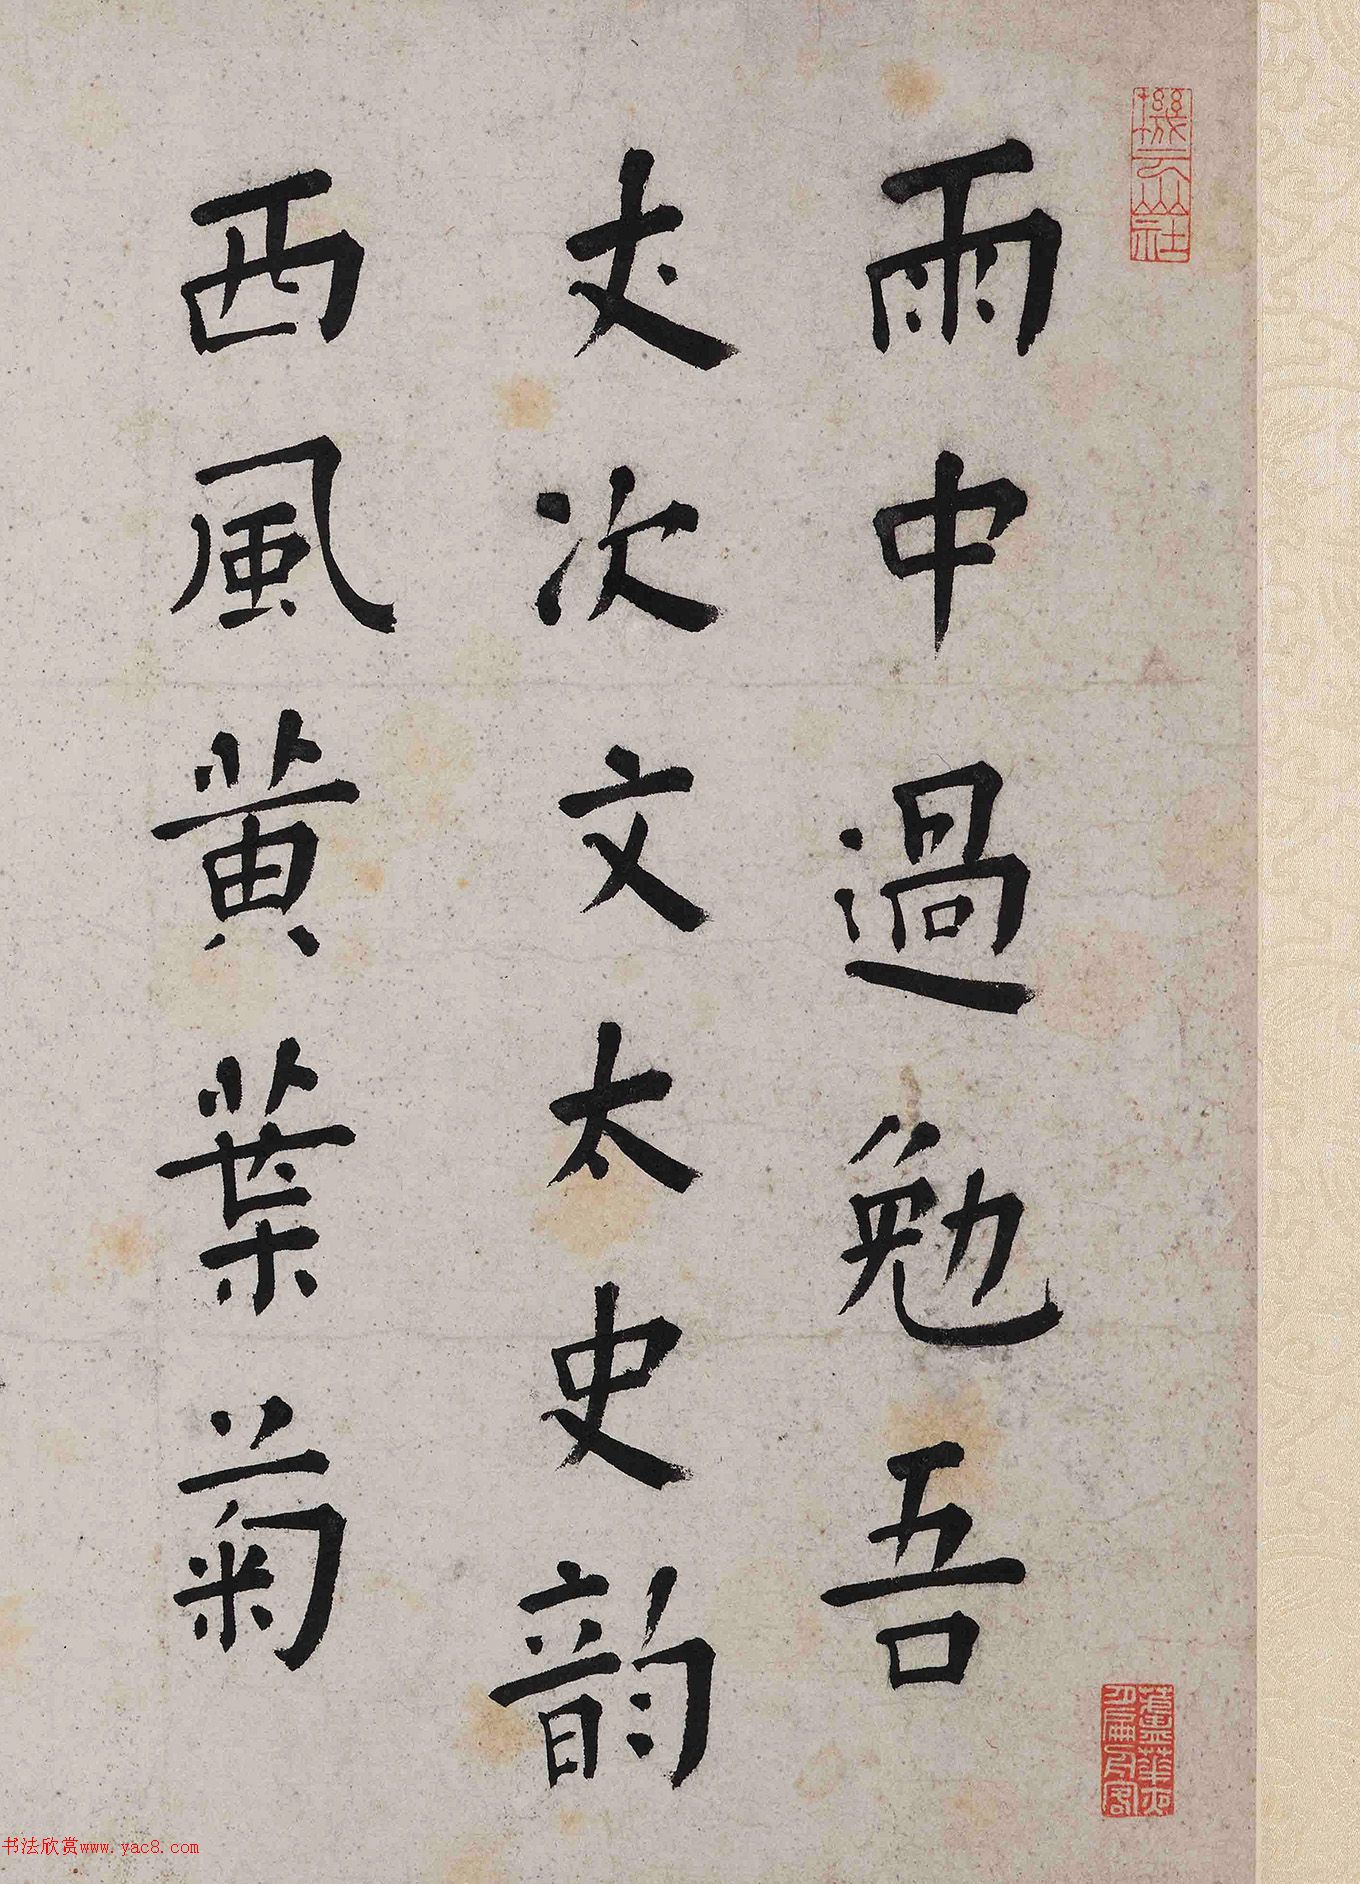 雨中過勉吾
丈次文太史韵
西風黄葉菊
書法欣赏www.yac8.com